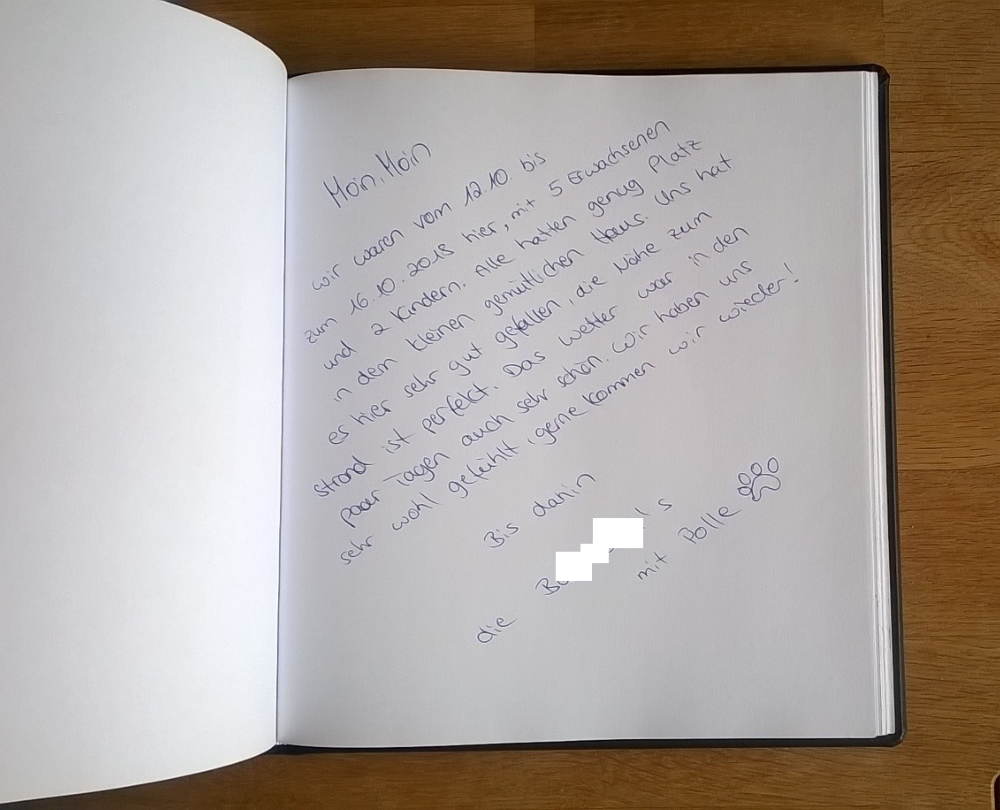 Moin, Moin
wir waren vom 12.10. bis
zum 16.10.2018 hier, mit 5 Erwachsenen
und 2 Kindern. Alle hatten genug Platz
in dem kleinen gemütlichen Haus. Uns hat
es hier sehr gut gefallen, die Nähe zum
Strand ist perfekt. Das Wetter war in den
paar Tagen auch sehr schön. Wir haben uns
sehr wohl gefühlt, gerne kommen wir wieder!
Bis dahin
die
mit Polle